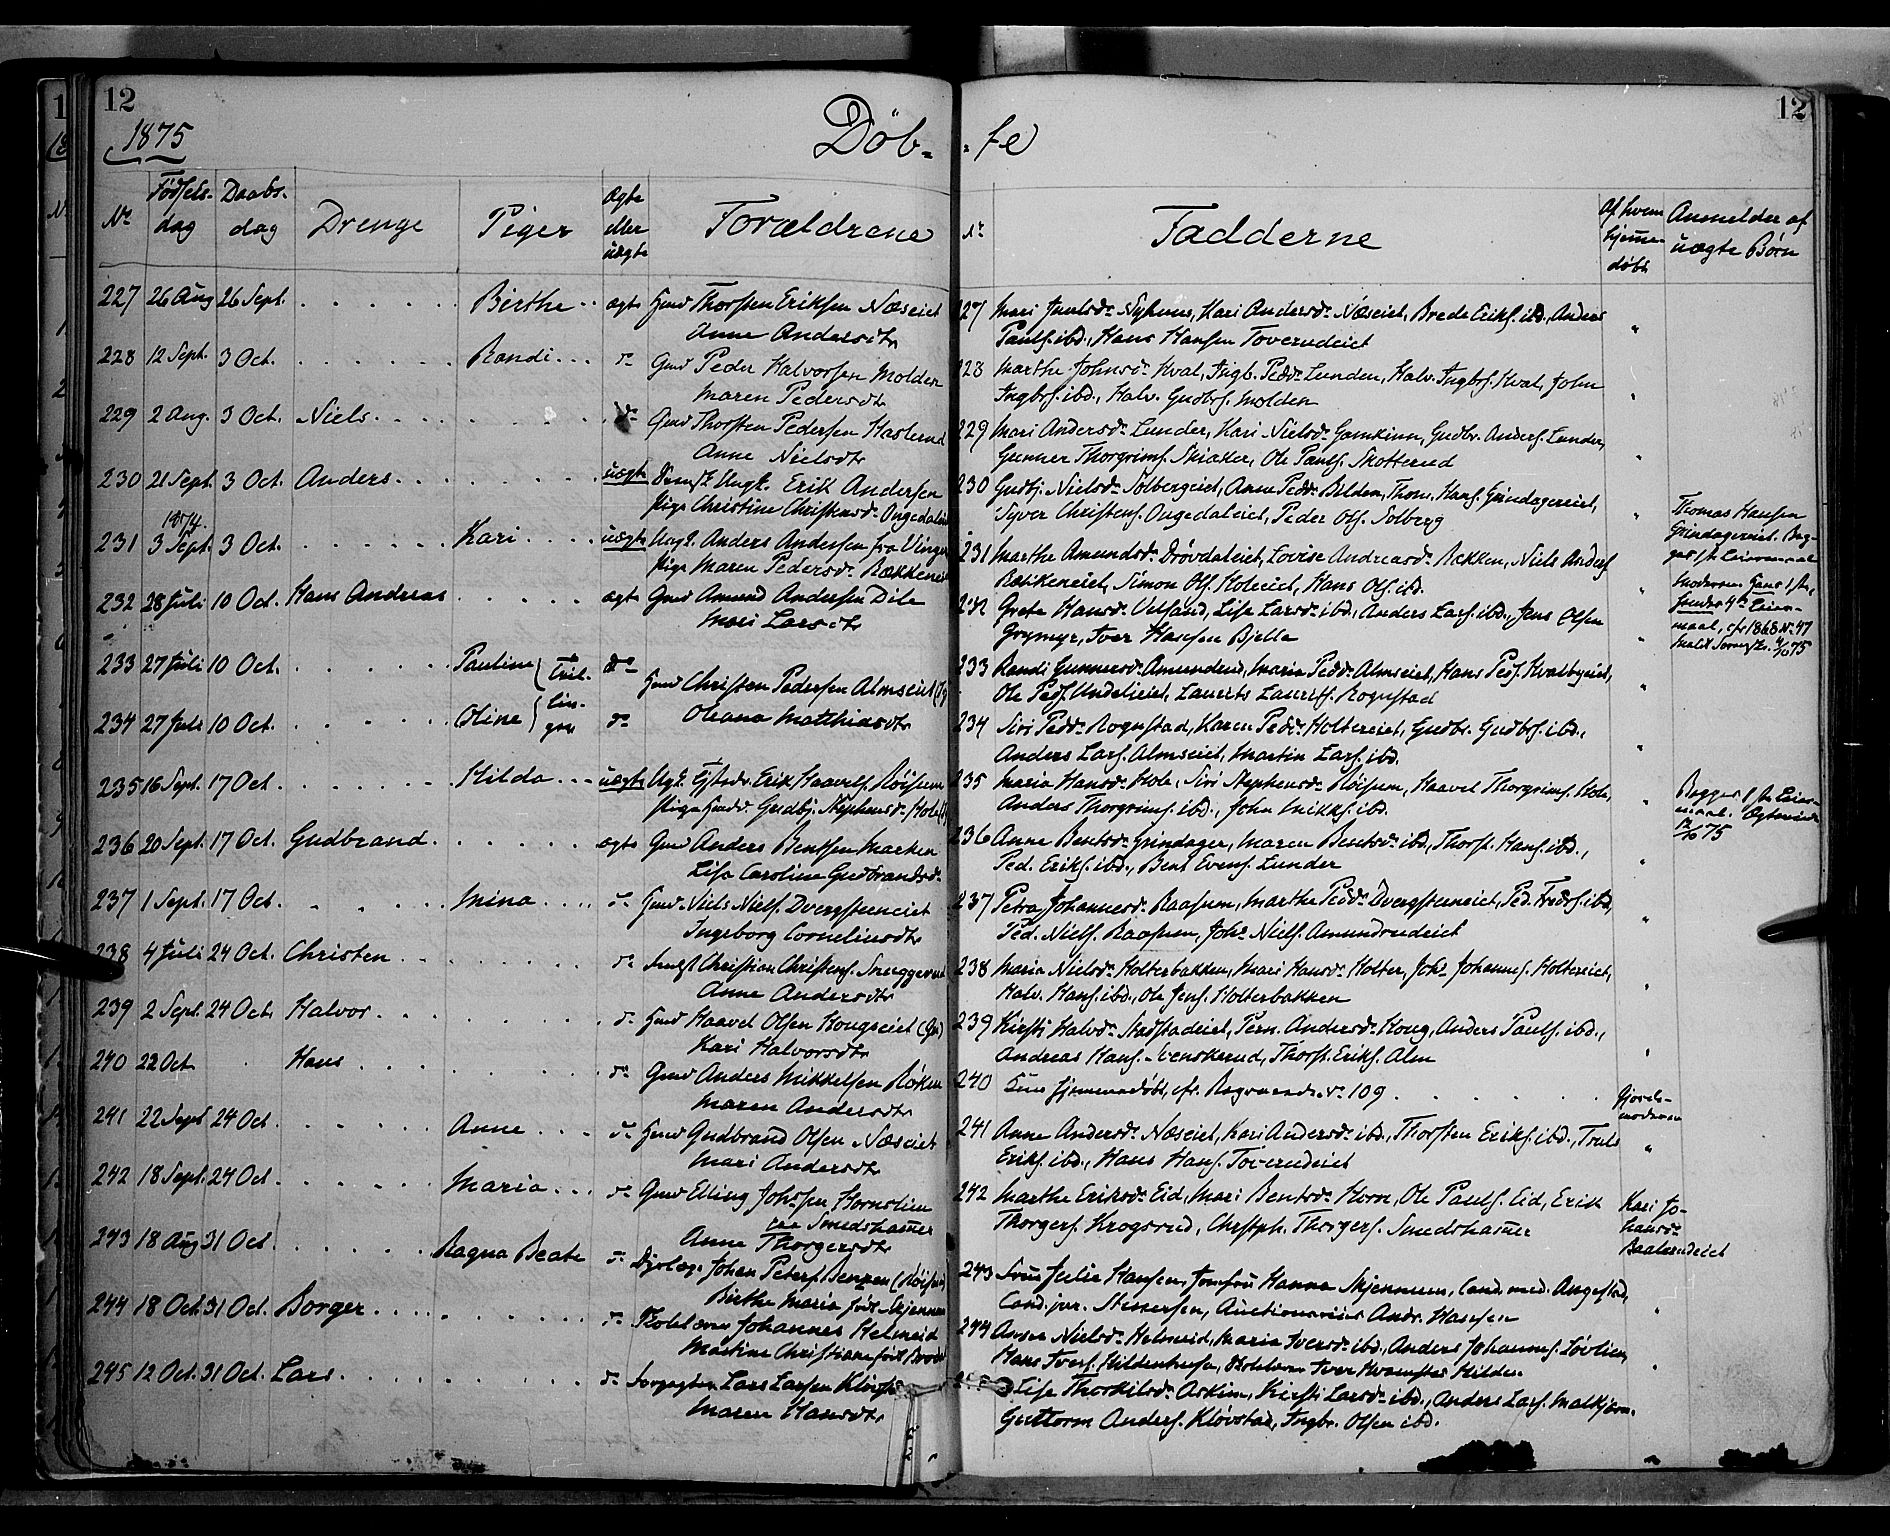 12
1875
Döb-
No Födsels-dag Daabs-dag Drenge Piger Ægte eller uægte Forældrene
227 26 Aug 26 Sept. Birthe ægte Gmd Thorsten Eriksen Næseiet
Anne Andersdtr
228 12 Sept. 3 Oct. Randi do Gmd Peder Halvorsen Molden
Maren Pedersdtr
229 2 Aug. 3 Oct. Niels do Gmd Thorsten Pedersen Haslerud
Anne Nielsdtr
230 21 Sept. 3 Oct. Anders uægte Ungk. Erik Andersen
Pige Christine Christensdr
1874.
231 3 Sept. 3 Oct. Kari uægte Ungk. Anders Andersen fra Vinger
Pige Maren Pedersdr
232 28 Juli 10 Oct. Hans Andreas ægte Gmd Amund Andersen
Mari Larsdtr
233 27 Juli 10 Oct. Pauline Tvil- do
Hmd Christen Pedersen Almseiet
lin-
234 27 Juli 10 Oct. Oline ger do Oleana Matthiasdtr
235 16 Sept. 17 Oct. Hilda uægte Ugk. Erik Haavels. Röisum
Pige Gudbj. Stephensdr
236 20 Sept. 17 Oct. Gudbrand ægte Gmd Anders Bentsen Marken
Lise Caroline Gudbrandsdr
237 1 Sept. 17 Oct. Mina do Hmd Niels Niels. Dvergsteneiet
Ingeborg Corneliusdtr
238 4 Juli 24 Oct. Christen do Christian Christens.
Anne Andersdtr
239 2 Sept. 24 Oct. Halvor do Hmd Haavel Olsen Hougseiet
Kari Halvorsdtr
240 22 Oct Hans do Gmd Anders Mikkelsen Röken
Maren Andersdtr
241 22 Sept 24 Oct. Anne do Hmd Gudbrand Olsen Næseiet
Mari Andersdtr
242 18 Sept. 24 Oct Maria do Gmd Elling Johsen Hornslien
Smedshammer
Anne Thorgersdtr
243 18 Aug 31 Oct Ragna Beate do Dyrlæge Johan Peters. Benzen
Birthe Maria född Skjennum
244 18 Oct. 31 Oct. Borger do Johannes Helmeid
Martine Christiane född
245 12 Oct. 31 Oct. Lars do Lars Larsen
Maren Hansdtr
12
te
No Fadderne Af hvem hjemme-döbt Anmelder af uægte Børn
227 Kari Andersdr Næseiet, Brede Eriks. ibd., Anders
Pauls. ibd., Hans Hansen Toverudeiet
228 Marthe Johnsdr Hval, Ingb. Pedsdr Lunden, Halv. Ingbrs. Hval, John
Ingbrs. ibd., Halv. Gudbrs. Molden
229 Mari Andersdr Lunder, Kari Nielsdr Gamkinn, Gudbr. Anders. Lunder,
Gunner Thorgrims. Skiaker, Ole Pauls. Skotterud
230 Gudbj. Nielsdr Solbergeiet, Anne Pedsdr Bilden, Thom. Hans. Grindagereiet,
Syver Christens. Ongedaleiet, Peder Ols. Solberg
Thomas Hansen
Grindagereiet. Beg-
ges 1ste Leiermaal
231 Marthe Amundsdr Drövdaleiet, Lovise Andreasdr Bakken, Niels Anders.
Simon Ols. Holeiet, Hans Ols. ibd.
Moderen. Hans 1ste,
hendes 4de Leier-
maal, cfr 1868 No 47
232 Grete Hansdr Ulsand, Lise Larsdr ibd., Anders Lars. ibd., Jens Olsen
Grymyr, Iver Hansen Bjelle
233 Randi Gunnersdr Amundrud, Maria Pedsdr Almseiet, Hans Peds. Hvalbyeiet,
Ole Peds. Undelieiet, Laurits Laurits. Rognstad
234 Siri Pedsdr Rognstad, Karen Pedsdr Holtereiet, Gudbr. Gudbrs. ibd.,
Anders Lars. Almseiet, Martin Lars. ibd.
235 Maria Hansdr Hole, Siri Stephensdr Röisum, Haavel Thorgrims. Hole,
Anders Thorgrims. ibd., John Mikkels. ibd.
Begges 1ste Leier-
maal.
12/10 75
236 Anne Bentsdr Grindager, Maren Bentsdr ibd., Thorst. Hans. ibd.,
Ped. Eriks. ibd., Bent Evens. Lunder
237 Petra Johannesdr Raasum, Marthe Pedsdr Dvergsteneiet, Ped. Fredrs. ibd,
Ped. Niels. Raasum, Johs Niels. Amundrudeiet
238 Maria Nielsdr Holterbakken, Mari Hansdr Holter, Johs Johannes. Holtereiet,
Halv. Hans. ibd., Ole Jens. Holterbakken
239 Kirsti Halvdr Stadstadeiet, Pern. Andersdr Houg, Anders Pauls. ibd.,
Andreas Hans. Svenskerud, Thorst. Eriks. Alm
240 Kun hjemmedöbt, cfr. Begravede No 109 Gjorde-
moderen
241 Anne Andersdr Næseiet, Kari Andersdr ibd., Thorsten Eriks. ibd., Truls
Eriks. ibd., Hans Hans. Toverudeiet
242 Marthe Eriksdr Eid, Mari Bentsdr Horn, Ole Pauls. Eid, Erik
Thorgers. Krogsrud, Christph. Thorgers. Smedshammer
Kari Jo-
hansdr
Baalerudeiet
243 Fru Julie Hansen, Jomfru Hanna Skjennum, Cand. med. Angestad,
Cand. jur. Stenersen, Andr. Hansen
244 Anne Nielsdr Helmeid, Maria Iversdr ibd., Anders Johannes. Lövlien,
Hans Ivers. Iver
245 Lise Thorkilsdr Askim, Kirsti Larsdr ibd., Anders Lars.
Guttorm Anders. Klövstad, Ingbr. Olsen ibd.